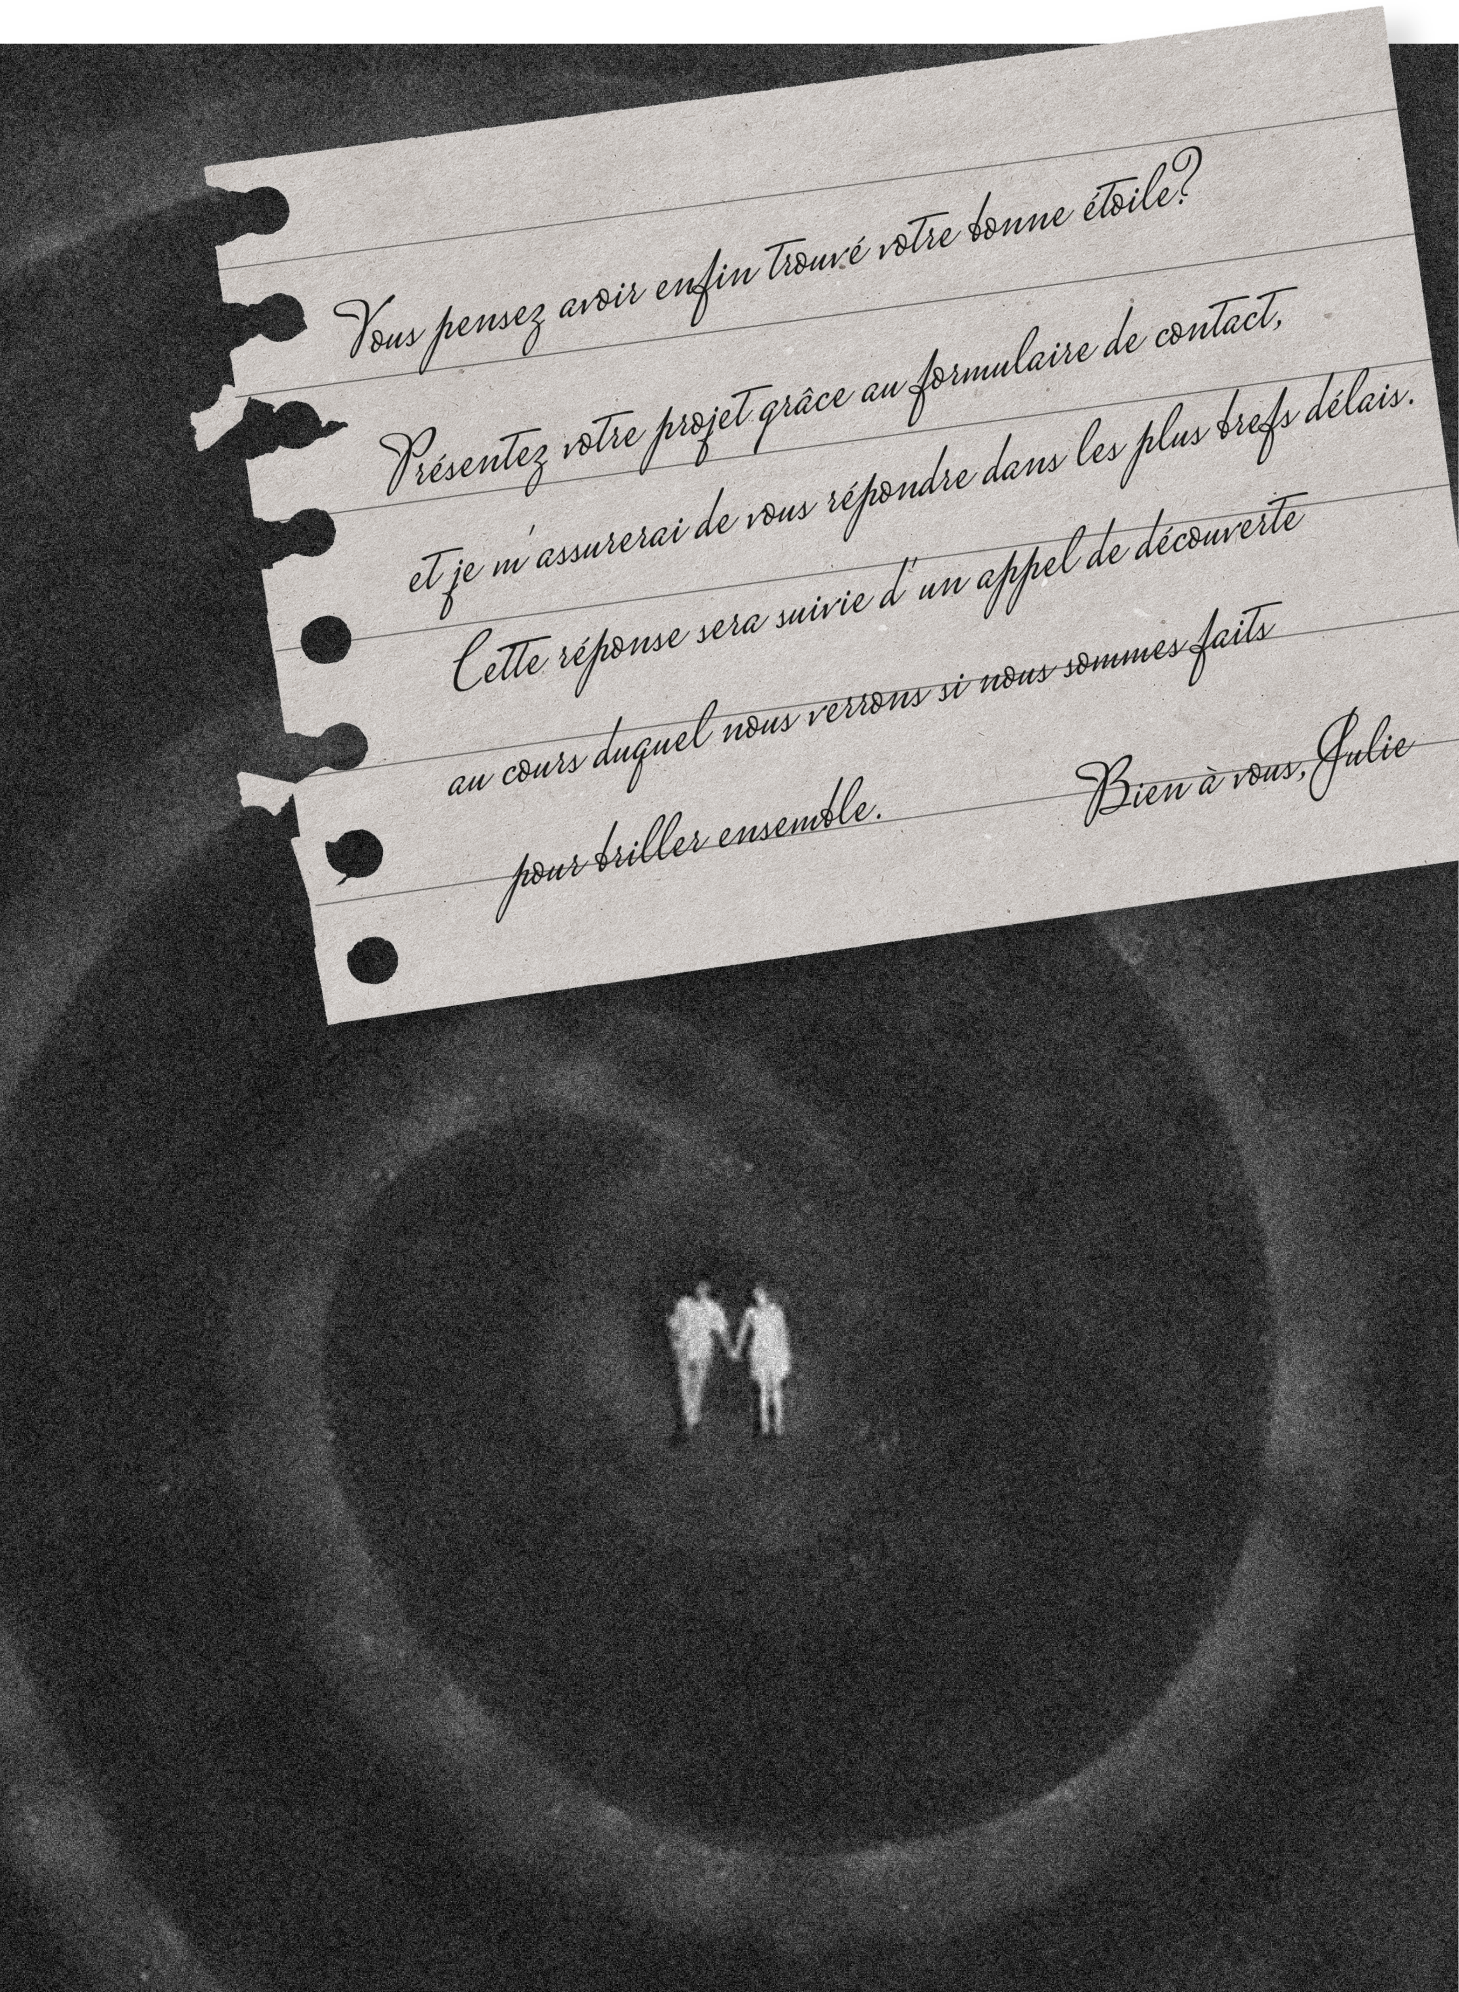 Vous pensez avoir enfin trouvé votre bonne étoile?
Présentez votre projet grâce au formulaire de contact,
et je m'assurerai de vous répondre dans les plus brefs délais.
Cette réponse sera suivie d'un appel de découverte
au cours duquel nous verrons si nous sommes faits
pour briller ensemble.
Bien à vous, Julie